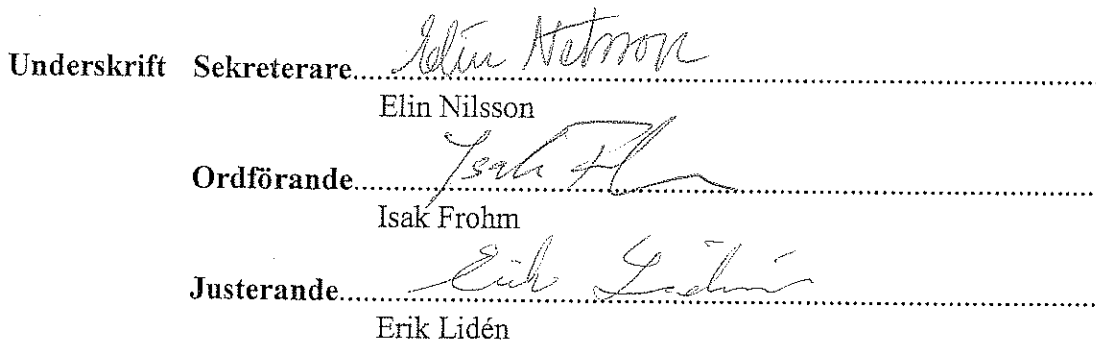 Underskrift Sekreterare.......... Elin Nilsson
Elin Nilsson
Ordförande.......... Isak Frohm
Isak Frohm
Justerande.......... Erik Lidén
Erik Lidén